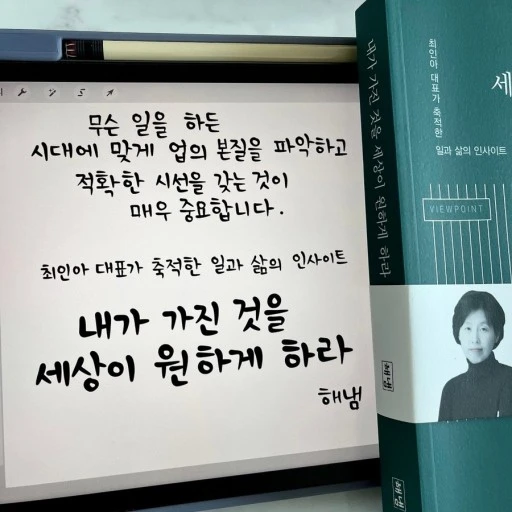 무슨 일을 하든
시대에 맞게 업의 본질을 파악하고
적확한 시선을 갖는 것이
매우 중요합니다.
최인아 대표가 축적한 일과 삶의 인사이트
내가 가진 것을
세상이 원하게 하라
해냄
내가 가진 것을 세상이 원하게 하라
해냄
최인아 대표가 축적한
일과 삶의 인사이트
세
VIEWPOINT
해냄